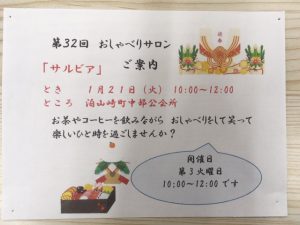 第32回 おしゃべりサロン
「サルビア」 ご案内
とき 1月21日(火) 10:00~12:00
ところ 泊山崎町中部公会所
お茶やコーヒーを飲みながら おしゃべりをして笑って
楽しいひと時を過ごしませんか?
開催日
第3火曜日
10:00~12:00 です